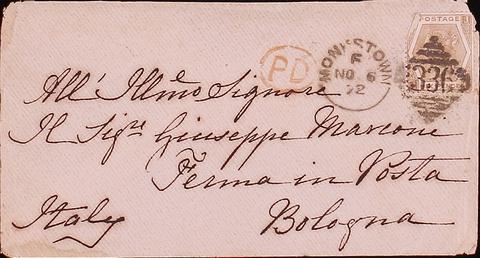 POSTAGE
PD
MONKSTOWN
F
NO 6
72
336
All' Illmo Signore
Il Sigre Giuseppe Marcone
Ferma in Posta
Italy Bologna